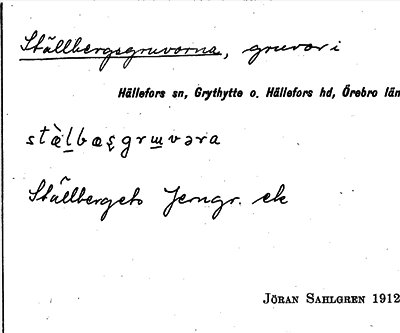 Ställbergsgruvorna, gruvor i
Hällefors sn, Grythytte o. Hällefors hd, Örebro län
Ställbergets Jerngr. ek
JÖRAN SAHLGREN 1912